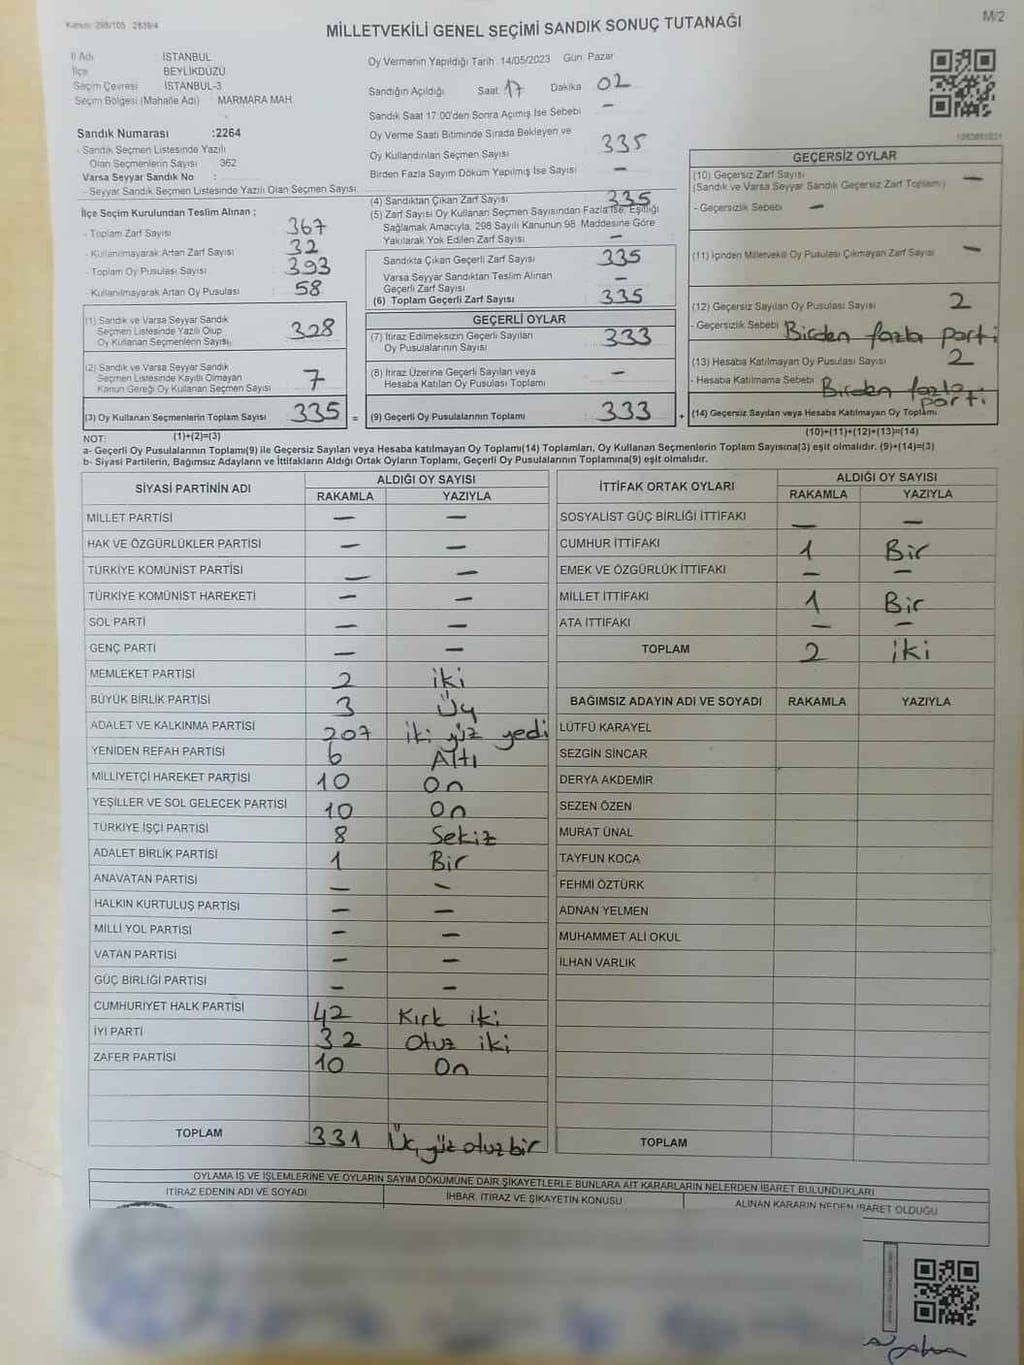 Kanun: 298/105 2839/4
M/2
MİLLETVEKİLİ GENEL SEÇİMİ SANDIK SONUÇ TUTANAĞI
İl Adı İSTANBUL
İlçe BEYLİKDÜZÜ
Seçim Çevresi İSTANBUL-3
Seçim Bölgesi (Mahalle Adı) MARMARA MAH.
Sandık Numarası :2264
- Sandık Seçmen Listesinde Yazılı
Olan Seçmenlerin Sayısı 362
Varsa Seyyar Sandık No :
- Seyyar Sandık Seçmen Listesinde Yazılı Olan Seçmen Sayısı
Oy Vermenin Yapıldığı Tarih :14/05/2023 Gün: Pazar
Sandığın Açıldığı Saat 17 Dakika 02
Sandık Saat 17:00'den Sonra Açımış İse Sebebi —
Oy Verme Saati Bitiminde Sırada Bekleyen ve
Oy Kullandırılan Seçmen Sayısı 335
Birden Fazla Sayım Döküm Yapılmış İse Sayısı —
İlçe Seçim Kurulundan Teslim Alınan ;
- Toplam Zarf Sayısı : 367
- Kullanılmayarak Artan Zarf Sayısı : 32
- Toplam Oy Pusulası Sayısı : 393
- Kullanılmayarak Artan Oy Pusulası : 58
(1) Sandık ve Varsa Seyyar Sandık
Seçmen Listesinde Yazılı Olup
Oy Kullanan Seçmenlerin Sayısı 328
(2) Sandık ve Varsa Seyyar Sandık
Seçmen Listesinde Kayıtlı Olmayan
Kanun Gereği Oy Kullanan Seçmen Sayısı 7
(3) Oy Kullanan Seçmenlerin Toplam Sayısı 335 =
(4) Sandıktan Çıkan Zarf Sayısı 335
(5) Zarf Sayısı Oy Kullanan Seçmen Sayısından Fazla İse, Eşitliği
Sağlamak Amacıyla, 298 Sayılı Kanunun 98. Maddesine Göre
Yakılarak Yok Edilen Zarf Sayısı —
Sandıkta Çıkan Geçerli Zarf Sayısı 335
Varsa Seyyar Sandıktan Teslim Alınan
Geçerli Zarf Sayısı —
(6) Toplam Geçerli Zarf Sayısı 335
GEÇERLİ OYLAR
(7) İtiraz Edilmeksizin Geçerli Sayılan
Oy Pusulalarının Sayısı 333
(8) İtiraz Üzerine Geçerli Sayılan veya
Hesaba Katılan Oy Pusulası Toplamı —
(9) Geçerli Oy Pusulalarının Toplamı 333 +
GEÇERSİZ OYLAR
(10) Geçersiz Zarf Sayısı
(Sandık ve Varsa Seyyar Sandık Geçersiz Zarf Toplamı) —
- Geçersizlik Sebebi —
(11) İçinden Milletvekili Oy Pusulası Çıkmayan Zarf Sayısı —
(12) Geçersiz Sayılan Oy Pusulası Sayısı 2
- Geçersizlik Sebebi Birden fazla parti
(13) Hesaba Katılmayan Oy Pusulası Sayısı 2
- Hesaba Katılmama Sebebi Birden fazla
parti
(14) Geçersiz Sayılan veya Hesaba Katılmayan Oy Toplamı
NOT: (1)+(2)=(3) (10)+(11)+(12)+(13)=(14)
a- Geçerli Oy Pusulalarının Toplamı(9) ile Geçersiz Sayılan veya Hesaba katılmayan Oy Toplamı(14) Toplamları, Oy Kullanan Seçmenlerin Toplam Sayısına(3) eşit olmalıdır. (9)+(14)=(3)
b- Siyasi Partilerin, Bağımsız Adayların ve İttifakların Aldığı Ortak Oyların Toplamı, Geçerli Oy Pusulalarının Toplamına(9) eşit olmalıdır.
SİYASİ PARTİNİN ADI ALDIĞI OY SAYISI
RAKAMLA YAZIYLA
MİLLET PARTİSİ — —
HAK VE ÖZGÜRLÜKLER PARTİSİ — —
TÜRKİYE KOMÜNİST PARTİSİ — —
TÜRKİYE KOMÜNİST HAREKETİ — —
SOL PARTİ — —
GENÇ PARTİ — —
MEMLEKET PARTİSİ 2 iki
BÜYÜK BİRLİK PARTİSİ 3 Üç
ADALET VE KALKINMA PARTİSİ 207 iki yüz yedi
YENİDEN REFAH PARTİSİ 6 Altı
MİLLİYETÇİ HAREKET PARTİSİ 10 On
YEŞİLLER VE SOL GELECEK PARTİSİ 10 On
TÜRKİYE İŞÇİ PARTİSİ 8 Sekiz
ADALET BİRLİK PARTİSİ 1 Bir
ANAVATAN PARTİSİ — —
HALKIN KURTULUŞ PARTİSİ — —
MİLLİ YOL PARTİSİ — —
VATAN PARTİSİ — —
GÜÇ BİRLİĞİ PARTİSİ — —
CUMHURİYET HALK PARTİSİ 42 Kırk iki
İYİ PARTİ 32 otuz iki
ZAFER PARTİSİ 10 On
TOPLAM 331 Üç yüz otuz bir
İTTİFAK ORTAK OYLARI ALDIĞI OY SAYISI
RAKAMLA YAZIYLA
SOSYALİST GÜÇ BİRLİĞİ İTTİFAKI — —
CUMHUR İTTİFAKI 1 Bir
EMEK VE ÖZGÜRLÜK İTTİFAKI — —
MİLLET İTTİFAKI 1 Bir
ATA İTTİFAKI — —
TOPLAM 2 iki
BAĞIMSIZ ADAYIN ADI VE SOYADI RAKAMLA YAZIYLA
LÜTFÜ KARAYEL
SEZGİN SİNCAR
DERYA AKDEMİR
SEZEN ÖZEN
MURAT ÜNAL
TAYFUN KOCA
FEHMİ ÖZTÜRK
ADNAN YELMEN
MUHAMMET ALİ OKUL
İLHAN VARLIK
TOPLAM
OYLAMA İŞ VE İŞLEMLERİNE VE OYLARIN SAYIM DÖKÜMÜNE DAİR ŞİKAYETLERLE BUNLARA AİT KARARLARIN NELERDEN İBARET BULUNDUKLARI
İTİRAZ EDENİN ADI VE SOYADI İHBAR, İTİRAZ VE ŞİKAYETİN KONUSU ALINAN KARARIN NEDEN İBARET OLDUĞU